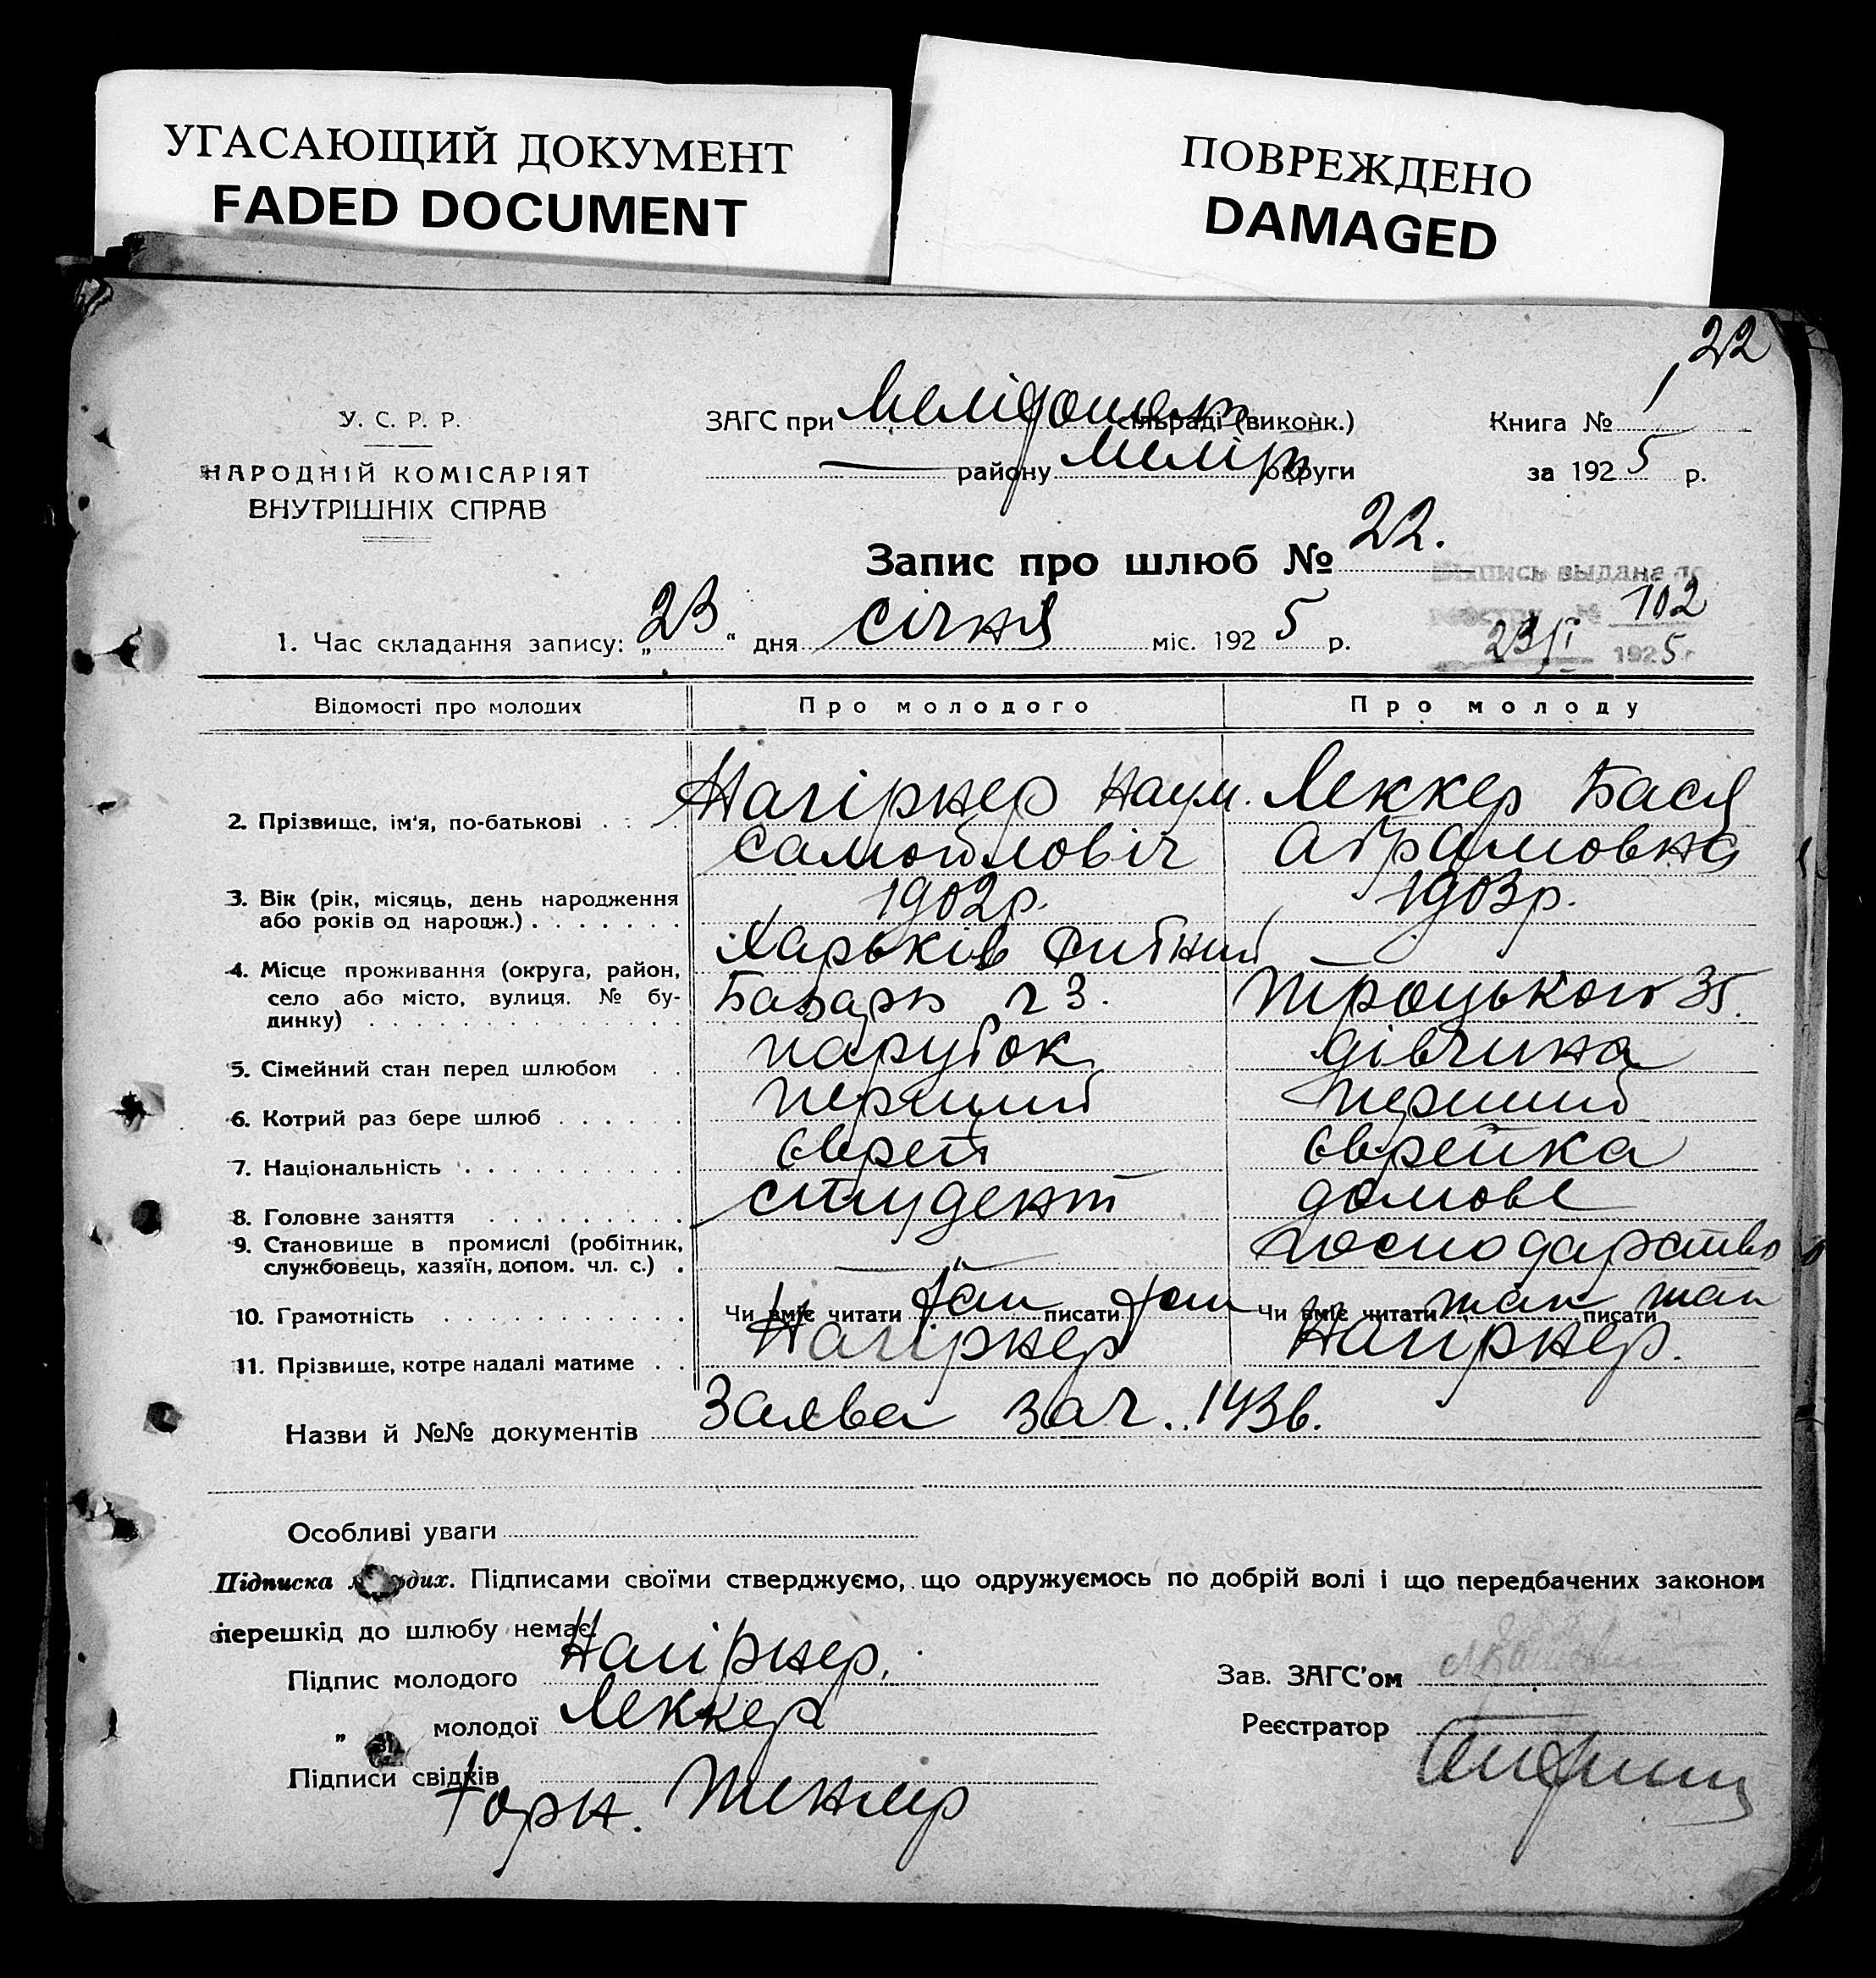 УГАСАЮЩИЙ ДОКУМЕНТ
FADED DOCUMENT
ПОВРЕЖДЕНО
DAMAGED
22
У. С. Р. Р.
НАРОДНІЙ КОМІСАРІЯТ
ВНУТРІШНІХ СПРАВ
ЗАГС при сільраді (виконк.)
району Меліт округи
Книга № 1
за 1925 р.
Запис про шлюб № 22.
выдана по
102
23/I 1925 г
1. Час складання запису: „23“ дня січня міс. 1925 р.
Відомості про молодих Про молодого Про молоду
2. Прізвище, ім'я, по-батькові . . . Нагірнер Наум. Леккер Бася
Самойловіч Абрамовна
3. Вік (рік, місяць, день народження 1902р. 1903р.
або років од народж.) . . . . . . .
4. Місце проживання (округа, район, Харьків
село або місто, вулиця. № бу- Базарь 23. Троцького 35.
динку) . . . . . . . . . . . . . .
5. Сімейний стан перед шлюбом . . парубок дівчина
6. Котрий раз бере шлюб . . . . . . перший перший
7. Національність . . . . . . . . . . єврей єврейка
8. Головне заняття . . . . . . . . . студент домове
9. Становище в промислі (робітник, господарство
службовець, хазяїн, допом. чл. с.) .
10. Грамотність . . . . . . . . . . . Чи вміє читати так писати так Чи вміє читати так писати так
11. Прізвище, котре надалі матиме . . Нагірнер Нагірнер.
Назви й №№ документів Заява за ч. 143б.
Особливі уваги
Підписка молодих. Підписами своїми стверджуємо, що одружуємось по добрій волі і що передбачених законом
перешкід до шлюбу немає.
Підпис молодого Нагірнер.
Зав. ЗАГС'ом
„ молодої Леккер
Реєстратор
Підписи свідків